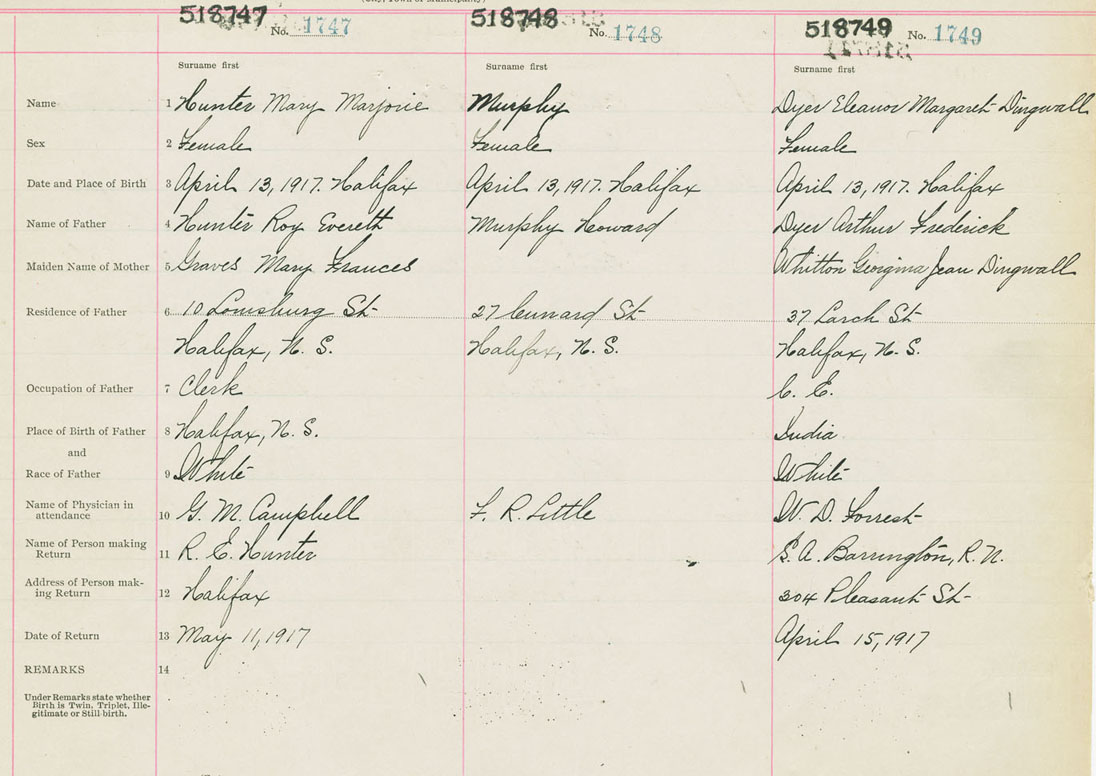 518747 No. 1747 518748 No. 1748 518749 No. 1749
Surname first Surname first Surname first
Name 1 Hunter Mary Marjorie Murphy Dyer Eleanor Margaret Dingwall
Sex 2 Female Female Female
Date and Place of Birth 3 April 13, 1917. Halifax April 13, 1917. Halifax April 13, 1917. Halifax
Name of Father 4 Hunter Roy Everett Murphy Howard Dyer Arthur Frederick
Maiden Name of Mother 5 Graves Mary Frances Whitton Georgina Jean Dingwall
Residence of Father 6 10 Louisburg St 27 Cunard St 37 Larch St
Halifax, N. S. Halifax, N. S. Halifax, N. S.
Occupation of Father 7 Clerk C. E.
Place of Birth of Father 8 Halifax, N. S. India
and
Race of Father 9 White White
Name of Physician in
attendance 10 G. M. Campbell F. R. Little W. D. Forrest
Name of Person making
Return 11 R. E. Hunter S. A. Barrington, R. N.
Address of Person mak-
ing Return 12 Halifax 304 Pleasant St
Date of Return 13 May 11, 1917 April 15, 1917
REMARKS 14
Under Remarks state whether
Birth is Twin, Triplet, Ille-
gitimate or Still-birth.